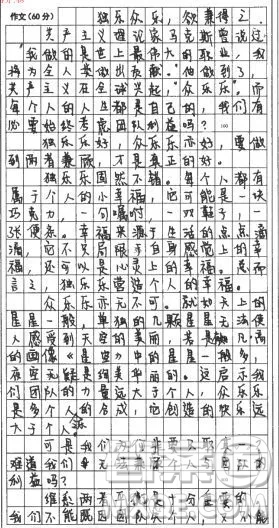 作文(60分)
独乐众乐，欲兼得之
共产主义理论家马克斯曾说过
"我做的是世上最伟大的职业，我
将为全人类做出贡献"他做到了，
共产主义在全球兴起"众乐乐"而
每个人的人生都是自己的，我们有
必要始终考虑团队利益吗？
独乐乐好，众乐乐亦好，要做
到两者兼顾，才是真正的好。
独乐乐固然不错。每个人都有
属于个人的小幸福，它可能是一块
巧克力，一句嘱咐，一双鞋子，一
张便条。幸福来源于生活的点点滴
滴，它不只局限于自身感觉上的幸
福，还可以是心灵上的幸福。总而
言之，独乐乐营造个人的幸福。
众乐乐亦无不可。就如天上的
星星一般，单独的几颗星星无法使
人感受到天空的美丽，若是
的画像《星空》中的星星一般多，
夜空无疑是绝美华丽的。这启示我
们团队的力量远大于个人，众乐乐
是多个人的合成，它创造的快乐远
大于个人乐
可是我们
难道我们无法兼个人与团队的
利益吗？
维系两者平衡是十分重要的
我们不能既因团队个人，又不能